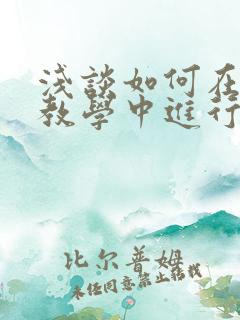 淺談如何在
教學中進行
比尔普姆
未经同意禁止转载